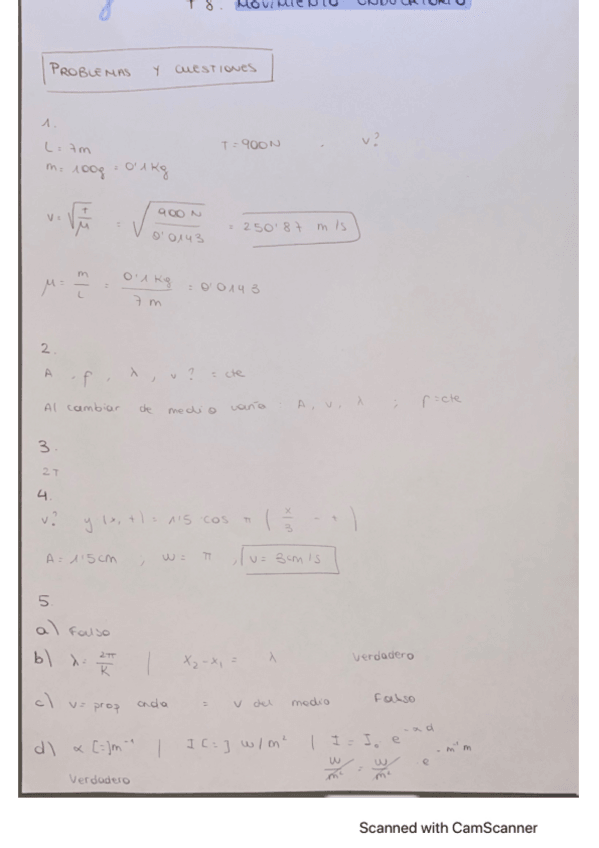 T 8. MOVIMIENTO ONDULATORIO
PROBLEMAS Y CUESTIONES
1.
L = 7m T = 900N . v?
m = 100g = 0'1 Kg
v = √(T/μ) = √(900 N/0'0143) = 250'87 m/s
μ = m/L = 0'1 Kg/7 m = 0'0143
2.
A , f , λ , v ? = cte
Al cambiar de medio varía : A, v, λ ; f = cte
3.
2π
4.
v? y (x, t) = 1'5 cos π (x/3 - t)
A = 1'5cm ; w = π , v = 3cm/s
5.
a) Falso
b) λ = 2π/K | x₂-x₁ = λ Verdadero
c) v = prop onda = v del medio Falso
d) α [=]m⁻¹ | I [=] w/m² | I = I₀ e^-αd
W/m² = W/m² e^-m⁻¹m
Verdadero
Scanned with CamScanner